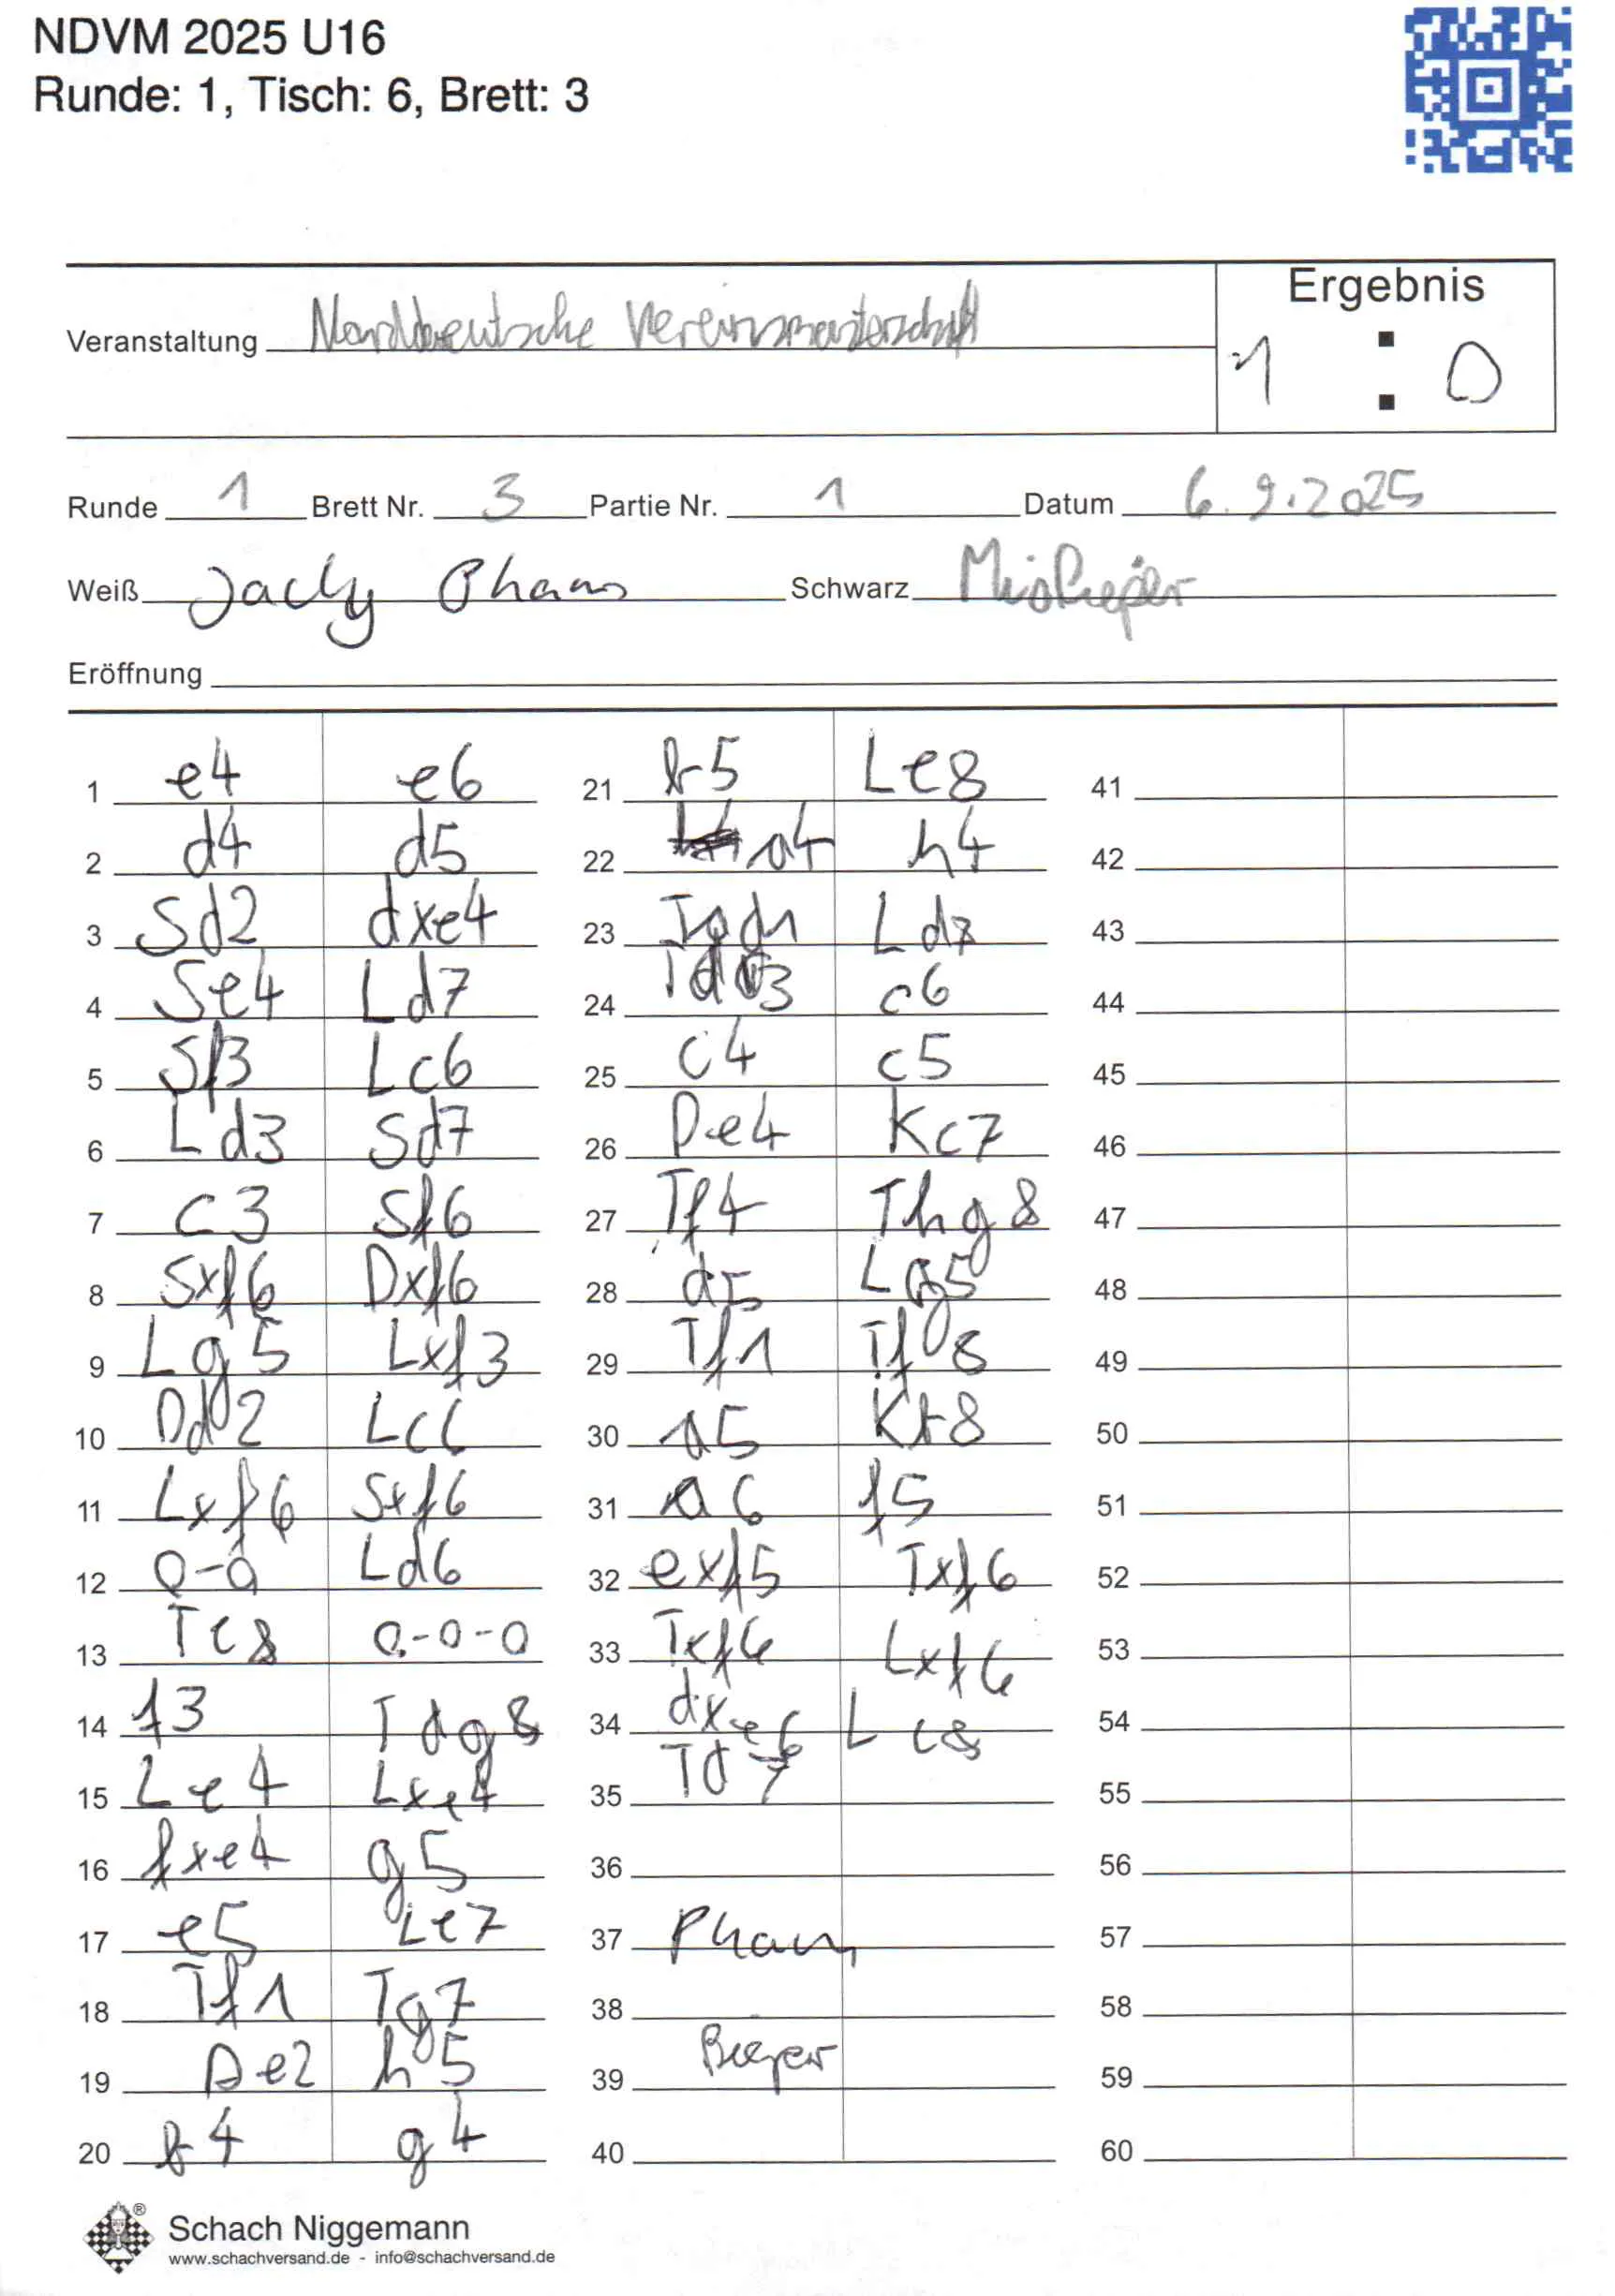 NDVM 2025 U16
Runde: 1, Tisch: 6, Brett: 3
Ergebnis
Veranstaltung Norddeutsche Vereinsmeisterschaft
1 : 0
Runde 1 Brett Nr. 3 Partie Nr. 1 Datum 6.9.2025
Weiß Jacky Pham Schwarz
Eröffnung
1 e4 e6 21 b5 Le8 41
2 d4 d5 22 a4 h4 42
3 Sd2 dxe4 23 Ld7 43
4 Se4 Ld7 24 c6 44
5 Sf3 Lc6 25 c4 c5 45
6 Ld3 Sd7 26 De4 Kc7 46
7 c3 Sf6 27 Tf4 Thg8 47
8 Sxf6 Dxf6 28 d5 Lg5 48
9 Lg5 Lxf3 29 Tf1 Tf8 49
10 Dd2 Lc6 30 a5 Kb8 50
11 Lxf6 Sxf6 31 a6 f5 51
12 0-0 Ld6 32 exf5 Txf6 52
13 0-0-0 33 Txf6 Lxf6 53
14 f3 Tdg8 34 dxe6 Lc8 54
15 Le4 Lxe4 35 Td7 55
16 fxe4 g5 36 56
17 e5 Le7 37 Pham 57
18 Tf1 Tg7 38 58
19 De2 h5 39 Rieper 59
20 b4 g4 40 60
®
Schach Niggemann
www.schachversand.de - info@schachversand.de